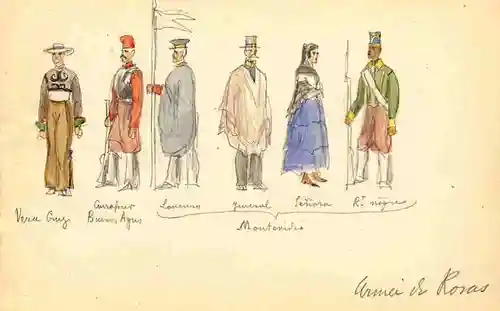 Vera Cruz
Buenos Ayres
Lanceros
général
Señora
Rt. nègre
Montevideo
Armée de Rosas